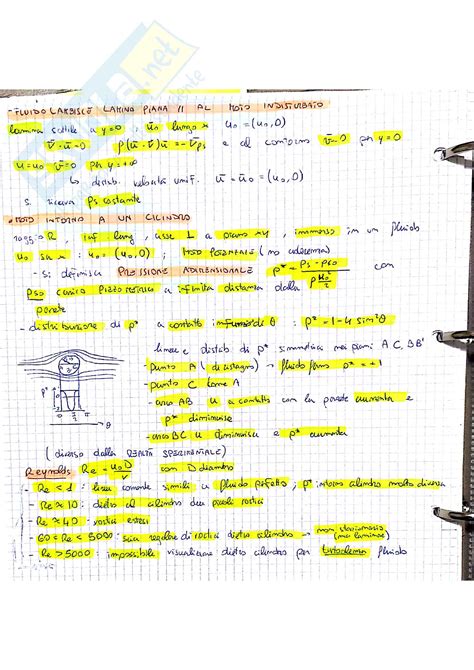 - FLUIDO LAMBISCE LAMINA PIANA // AL MOTO INDISTURBATO
lamina sottile a y=0 ; u̅₀ lungo x u₀ = (u₀,0)
∇̅·u̅=0 ρ(u̅·∇̅)u̅ = -∇̅ps e al contorno v̅=0 per y=0
u=u₀ v̅=0 per y=+∞
↳ distrib. velocità unif. u̅ = u̅₀ = (u₀,0)
si ricava ps costante
• MOTO INTORNO A UN CILINDRO
raggio R, inf. lung, asse ⊥ a piano xy, immerso in un fluido
u₀ su x : u₀ = (u₀,0) ; MOTO POTENZIALE (no aderenza)
- si definisce PRESSIONE ADIMENSIONALE p* = ps - ps∞ / ρ u₀²/2 con
ps∞ carico piezometrico a infinita distanza dalla
parete
- distribuzione di p* a contatto in funz. di θ : p* = 1-4 sin²θ
linee e distrib di p* simmetrica nei piani AC, BB'
- punto A (di ristagno) → fluido fermo p* = +1
- punto C come A
- arco AB u a contatto con la parete aumenta e
p* diminuisce
- arco BC u diminuisce e p* aumenta
p*
0
π/2
π
θ
(diverso dalla REALTÀ SPERIMENTALE)
Reynolds Re = u₀D/ν con D diametro
- Re < 1 : linee corrente simili a fluido perfetto, p* intorno cilindro molto diversa
- Re ≈ 10 : dietro al cilindro due piccoli vortici
- Re ≈ 40 : vortici estesi
- 60 < Re < 5000 : scia regolare di vortici dietro cilindro → non stazionario (ma laminare)
- Re > 5000 : impossibile visualizzare dietro cilindro per turbolenza fluido